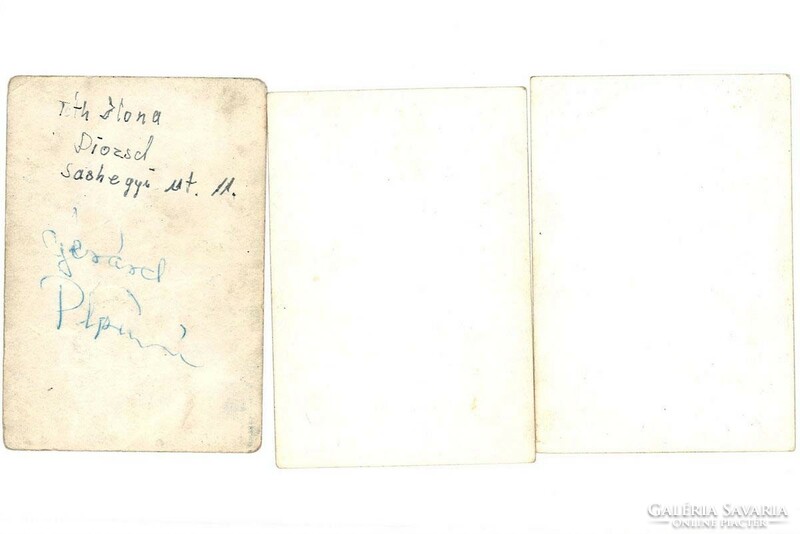 Tth Ilona
Diozsd
Sashegyi ut. 11.
Gérárd
GALÉRIA SAVARIA
ONLINE PIACTÉR